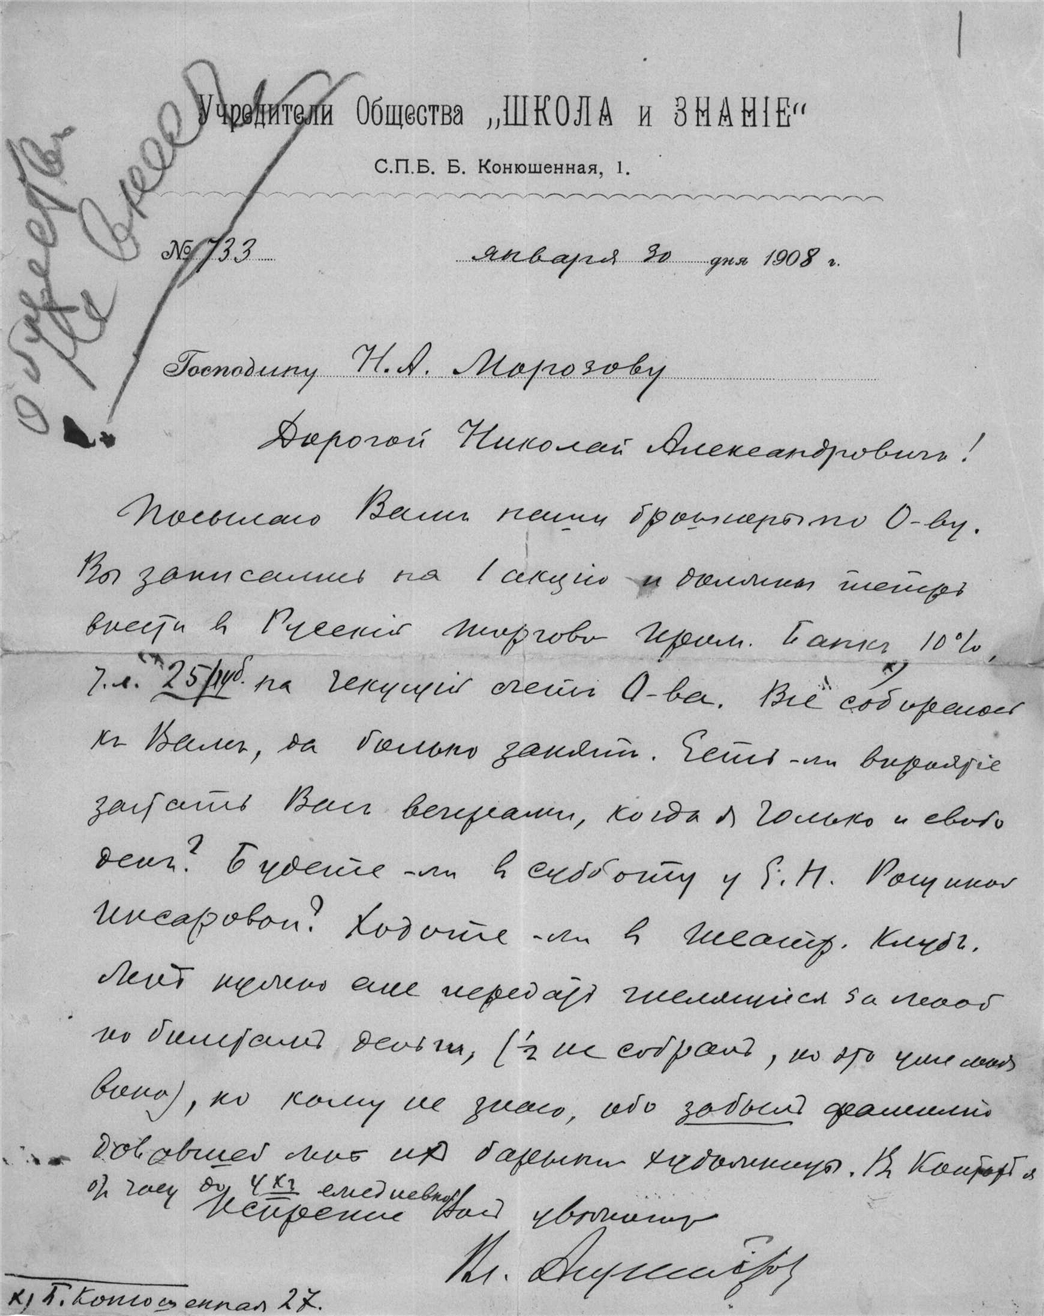 Учредители Общества „ШКОЛА и ЗНАНІЕ“
С.П.Б. Б. Конюшенная, 1.
№ 733 января 30 дня 1908 г.
Господину Н. А. Морозову
Дорогой Николай Александровичъ!
Посылаю Вамъ наши брошюры по О-ву.
Вы записались на 1 акцію и должны теперь
внести в Русскій Торгово Пром. Банкъ 10%,
т. е. 25 руб. на текущій счетъ О-ва. Все собираюсь
къ Вамъ, да больно занятъ. Есть-ли вѣроятіе
застать Васъ вечерами, когда я только и свобо
денъ? Будете-ли в субботу у Е. Н. Рощиной
Инсаровой? Ходите-ли в Театр. Клубъ.
Мнѣ нужно еще передать за мной
по билетамъ деньги, (½ не собралъ, но это уже моя
вина), но кому не знаю, ибо забылъ фамилію
дававшей мнѣ их барыни художницы. Въ Конторѣ я
от часу до 4 хъ ежедневно
Искренне Вас уважающ
Вл.
х) Б. Конюшенная 27.
Общества
Не внесъ